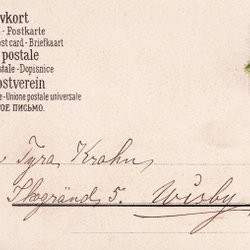 vkort
- Postkarte
ost card - Briefkaart
postale
stale - Dopisnice
ostverein
e - Unione postale universale
ТОЕ ПИСЬМО.
Tyra Krohn,
Skogränd 5. Wisby